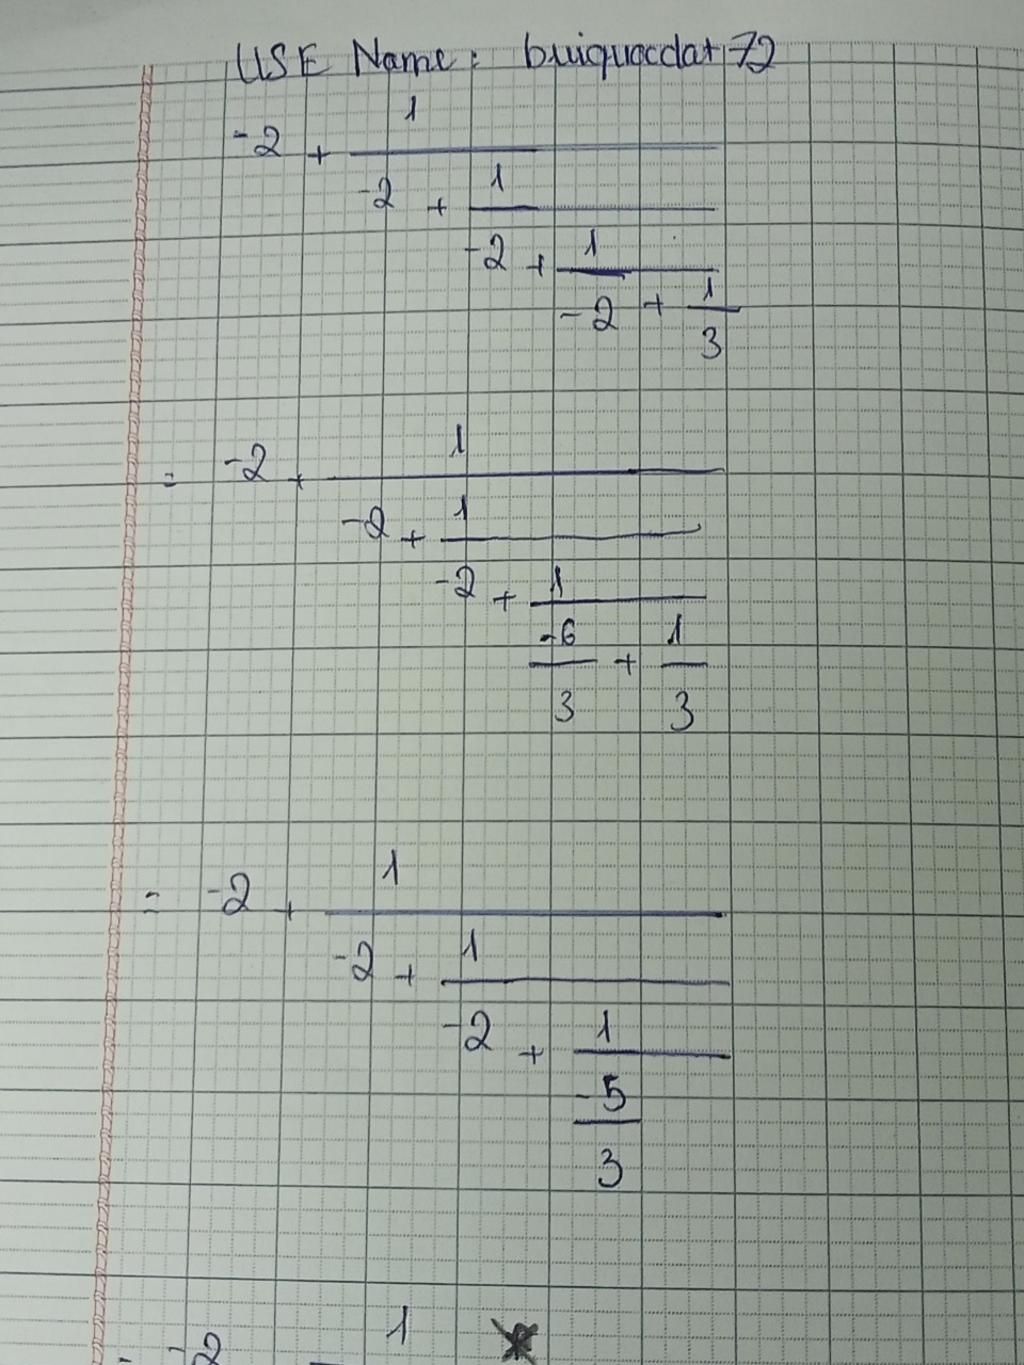 USE Name: buiquocdat72
-2 + 1
-2 + 1
-2 + 1
-2 + 1
3
= -2 + 1
-2 + 1
-2 + 1
-6 + 1
3 3
= -2 + 1
-2 + 1
-2 + 1
-5
3
1